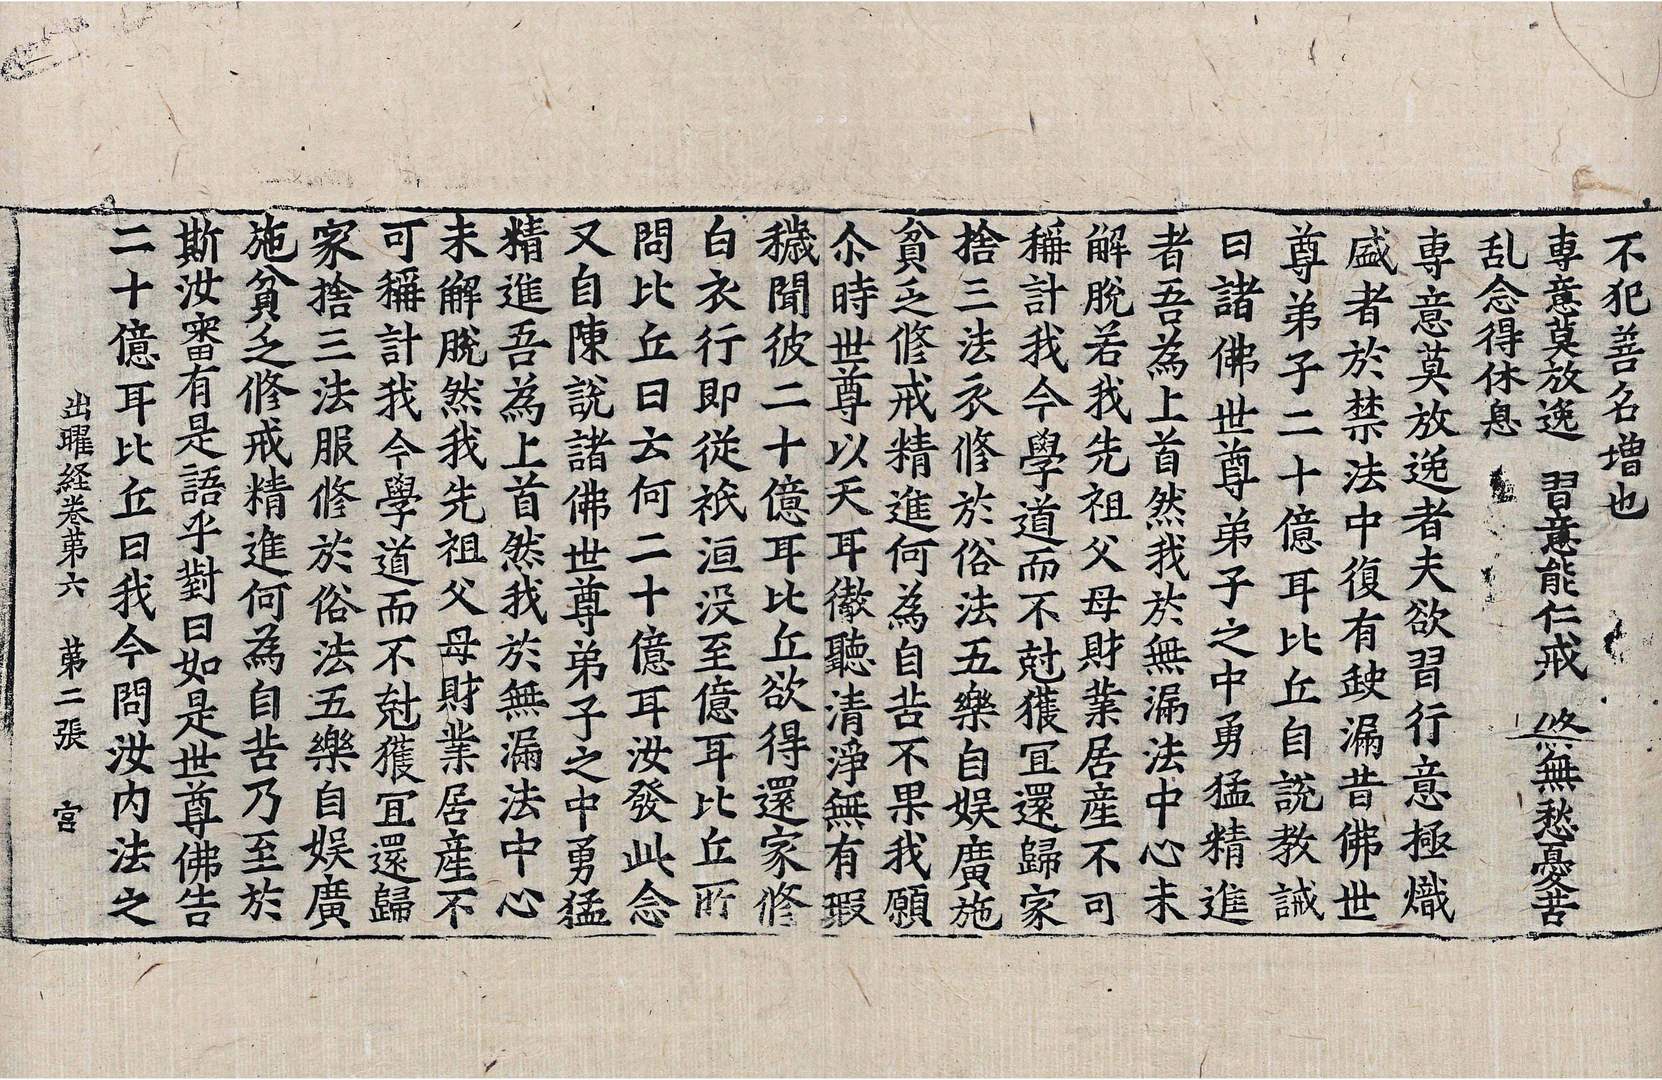 不犯善名増也
專意莫放逸　習意能仁戒　㳙無愁憂苦
乱念得休息
專意莫放逸者夫欲習行意極熾
盛者於禁法中復有缺漏昔佛世
尊弟子二十億耳比丘自說教誡
曰諸佛世尊弟子之中勇猛精進
者吾為上首然我於無漏法中心未
解脫若我先祖父母財業居產不可
稱計我今學道而不尅獲冝還歸家
捨三法衣修於俗法五樂自娱廣施
貧乏修戒精進何為自苦不果我願
尒時世尊以天耳徹聽清淨無有瑕
穢聞彼二十億耳比丘欲得還家修
白衣行即從祇洹没至億耳比丘所
問比丘曰云何二十億耳汝發此念
又自陳說諸佛世尊弟子之中勇猛
精進吾為上首然我於無漏法中心
未解脫然我先祖父母財業居產不
可稱計我今學道而不尅獲冝還歸
家捨三法服修於俗法五樂自娱廣
施貧乏修戒精進何為自苦乃至於
斯汝審有是語乎對曰如是世尊佛告
二十億耳比丘曰我今問汝内法之
出曜経卷第六　第二張　宫